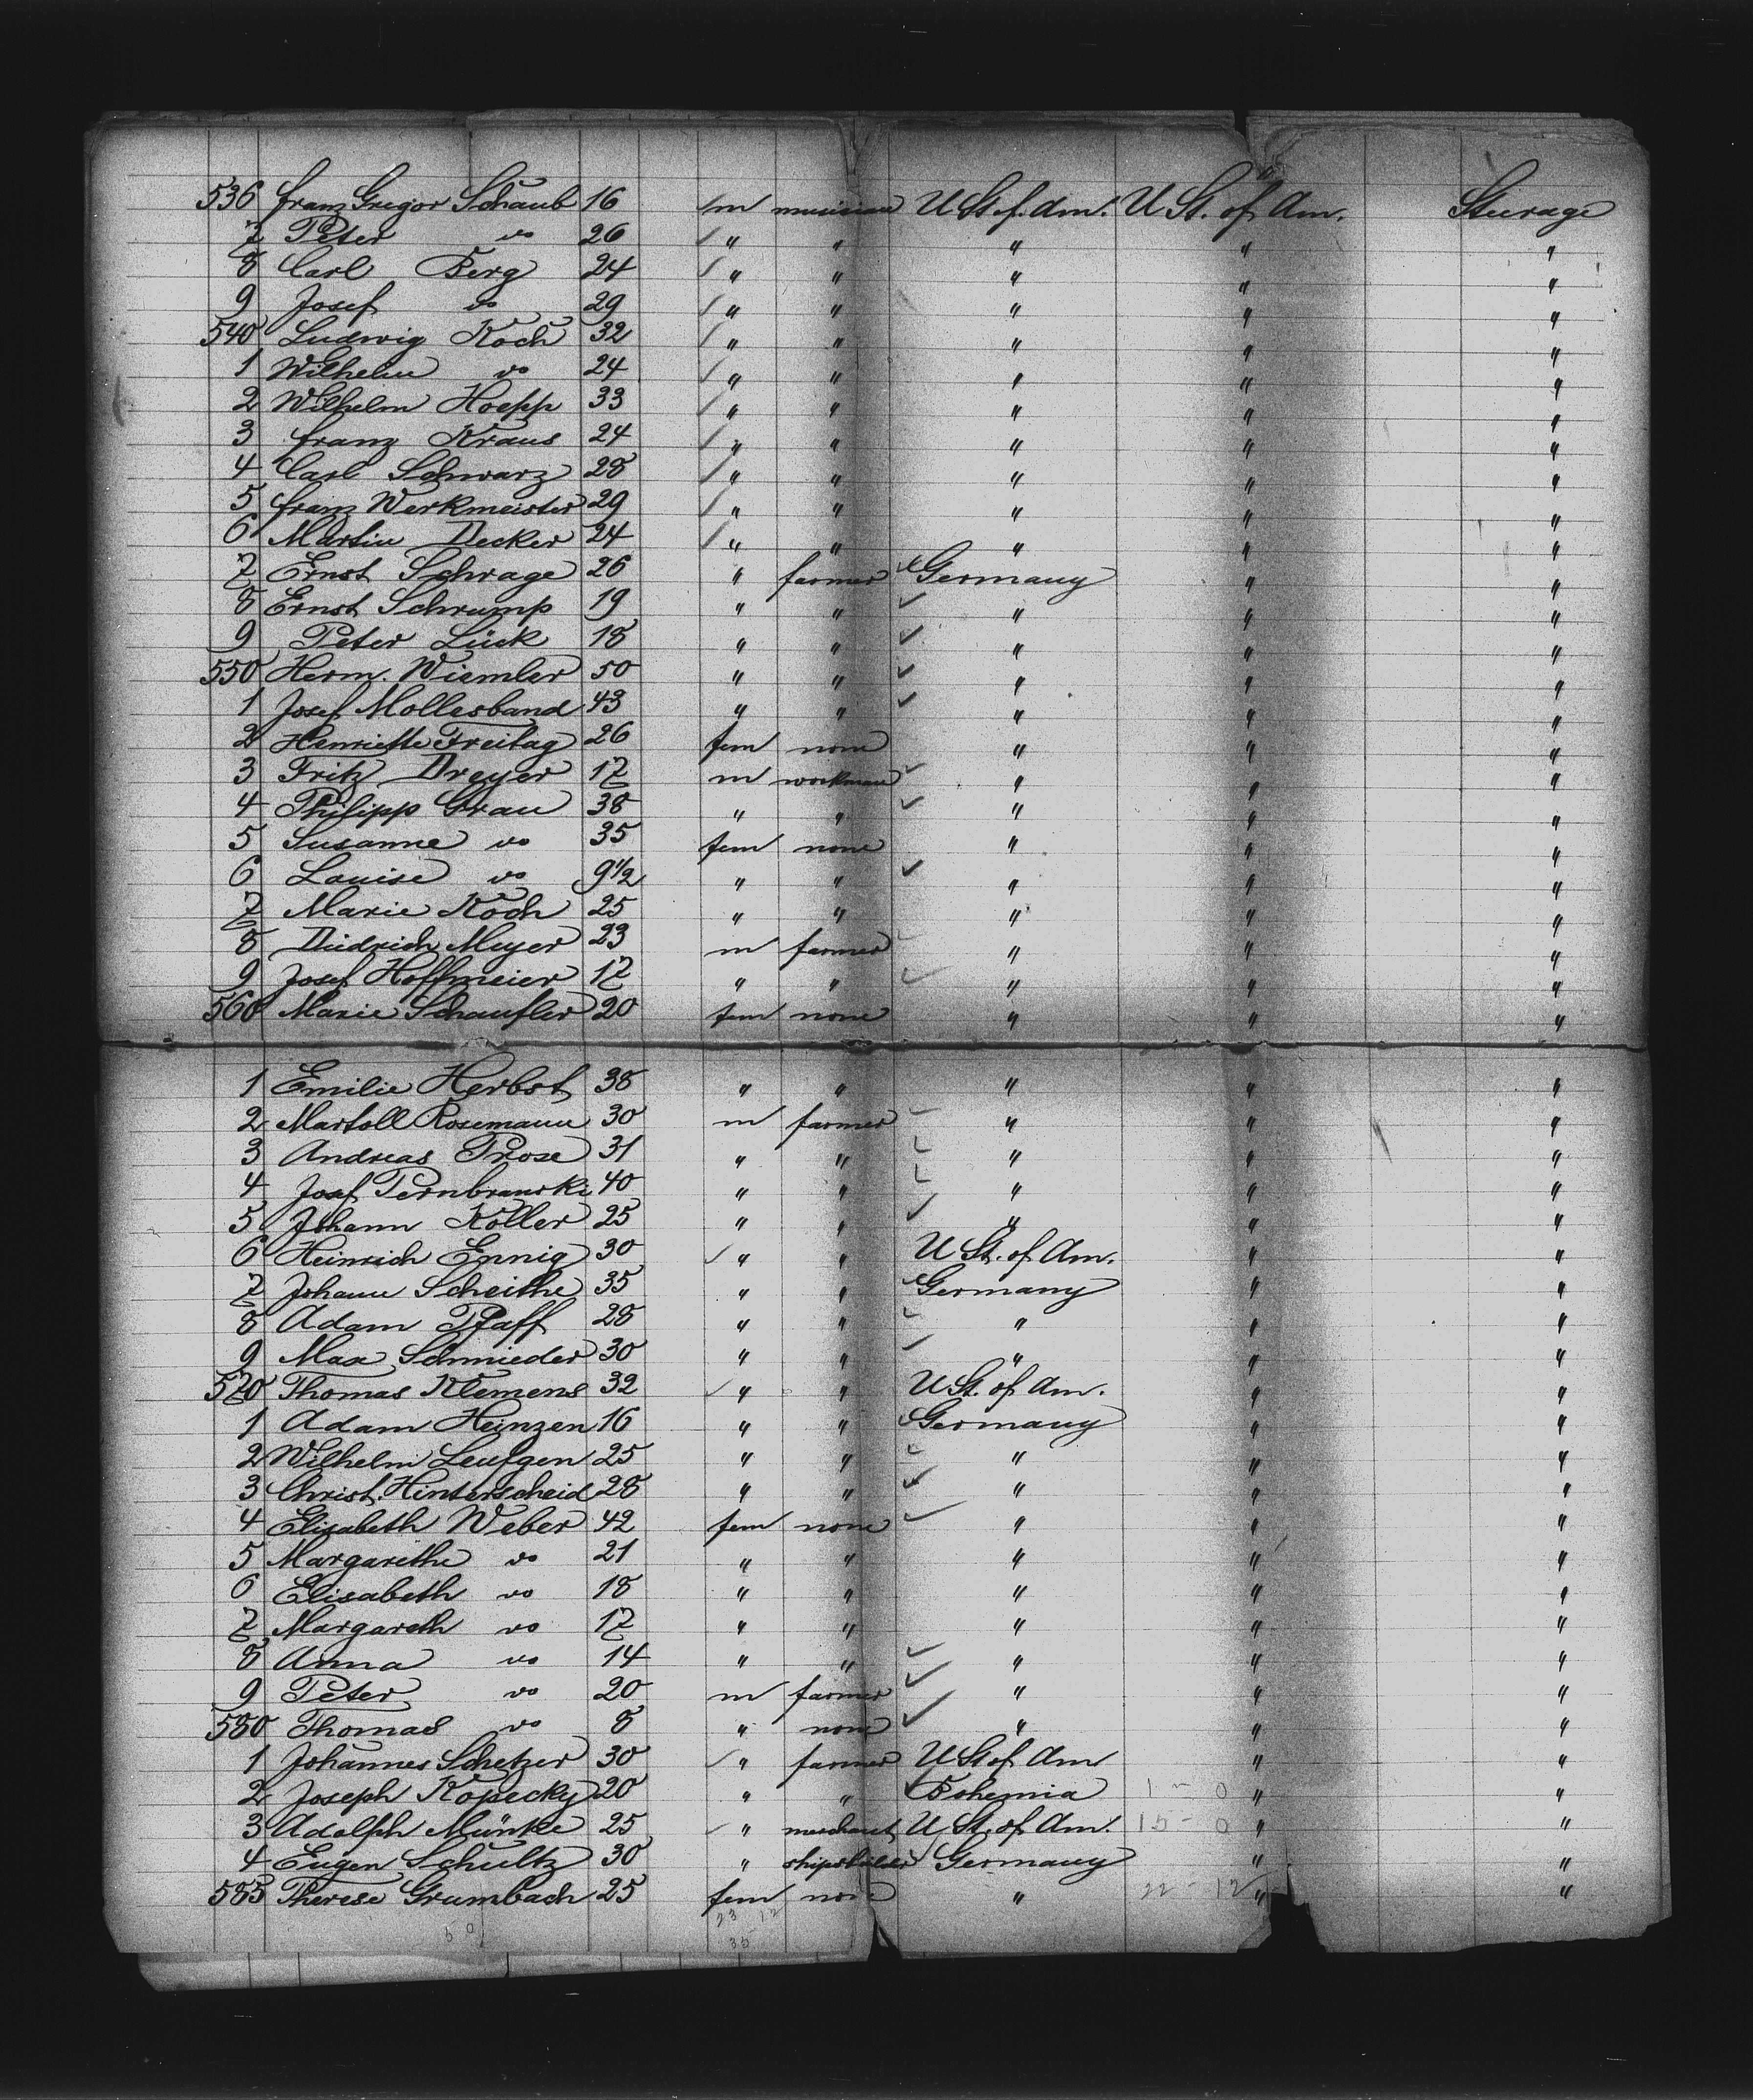 536 Franz Gregor Schaub 16 m musician U St. of. Am. U St. of Am. Steerage
7 Peter do 26 " " " " "
8 Carl Berg 24 " " " " "
9 Josef do 29 " " " " "
540 Ludwig Koch 32 " " " " "
1 Wilhelm do 24 " " " " "
2 Wilhelm Hoepp 33 " " " " "
3 Franz Kraus 24 " " " " "
4 Carl Schwarz 28 " " " " "
5 Franz Werkmeister 29 " " " " "
6 Martin Decker 24 " " " " "
7 Ernst Schrage 26 " farmer Germany " "
8 Ernst Schrump 19 " " " " "
9 Peter Lück 18 " " " " "
550 Herm. Wiemler 50 " " " " "
1 Josef Mollesband 43 " " " " "
2 Henriette Freitag 26 fem none " " "
3 Fritz Dreyer 17 m workman " " "
4 Philipp Grau 38 " " " " "
5 Susanne do 35 fem none " " "
6 Louise do 9 1/2 " " " " "
7 Marie Koch 25 " " " " "
8 Diedrich Meyer 23 m farmer " " "
9 Josef Hoffmeier 17 " " " " "
560 Marie Schaufler 20 fem none " " "
1 Emilie Herbst 38 " " " " "
2 Martoll Rosemann 30 m farmer " " "
3 Andreas Prose 31 " " " " "
4 Josef 40 " " " " "
5 Johann Koller 25 " " " " "
6 Heinrich Ennig 30 " " U St. of Am. " "
7 Johann Scheithe 35 " " Germany " "
8 Adam Pfaff 28 " " " " "
9 Max Schmieder 30 " " " " "
570 Thomas Klemens 32 " " U St. of Am. " "
1 Adam Heinzen 16 " " Germany " "
2 Wilhelm Leufgen 25 " " " " "
3 Christ. Hinterscheid 28 " " " " "
4 Elisabeth Weber 42 fem none " " "
5 Margarethe do 21 " " " " "
6 Elisabeth do 18 " " " " "
7 Margareth do 17 " " " " "
8 Anna do 14 " " " " "
9 Peter do 20 m farmer " " "
580 Thomas do 8 " none " " "
1 Johannes Schetzer 30 " farmer U St of Am " "
2 Joseph Kopecky 20 " " Bohemia 1 - 0 " "
3 Adolph Münke 25 " merchant U St. of Am. 15 - 0 " "
4 Eugen Schultz 30 " shipsbilder Germany " "
585 Therese Grumbach 25 fem none " 22 - 12 " "
23 12
35